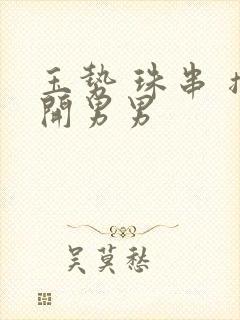 玉势 珠串 扩
開男男
吴莫愁